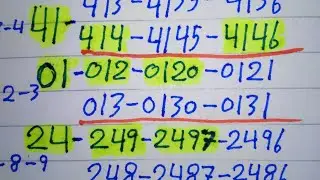 413-4135-4136
-4 41-
414-4145-4146
01-012-0120-0121
2-3
013-0130-0131
24-249-2497-2496
-8-9
248-2487-2486